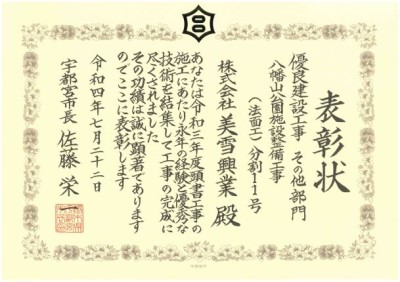 表彰状
優良建設工事 その他部門
八幡山公園施設整備工事
(法面工)分割1-1号
株式会社 美雪興業 殿
あなたは令和三年度頭書工事の
施工にあたり永年の経験と優秀な
技術を結集して工事の完成に
尽くされました
その功績は誠に顕著であります
のでここに表彰します
令和四年七月二十二日
宇都宮市長 佐藤栄一